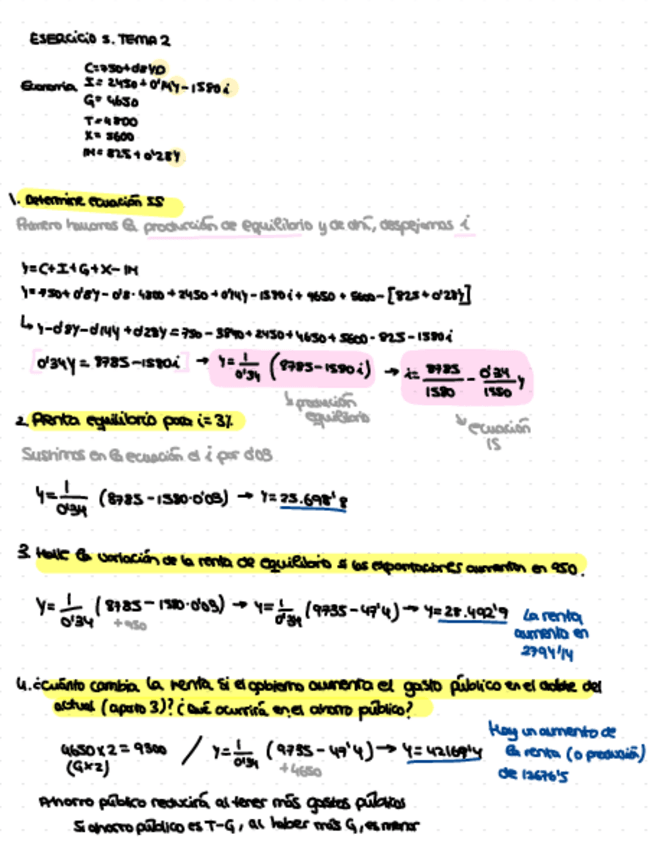 EJERCICIO 5. TEMA 2
Economía
C=750+0'8YD
I= 2450+0'14Y-1580i
G= 4650
T=4800
X= 5600
IM= 825+0'28Y
1. Determine ecuación IS
Primero hallamos la producción de equilibrio y de ahí, despejamos i
Y=C+I+G+X-IM
Y=750+0'8Y-0'8·4800+2450+0'14Y-1580i+4650+5600-[825+0'28Y]
↳ Y-0'8Y-0'14Y+0'28Y=750-3840+2450+4650+5600-825-1580i
0'34Y=8785-1580i → Y=1/0'34 (8785-1580i) → i=8785/1580 - 0'34/1580 Y
↳ producción equilibrio
↳ ecuación IS
2. Renta equilibrio para i=3%
Sustituimos en la ecuación el i por 0'03
Y=1/0'34 (8785-1580·0'03) → Y=25.698'8
3. Halle la variación de la renta de equilibrio si las exportaciones aumentan en 950.
Y=1/0'34 (8785-1580·0'03) → Y=1/0'34 (9735-47'4) → Y=28.492'9
+950
La renta aumenta en 2794'14
4. ¿Cuánto cambia la renta si el gobierno aumenta el gasto público en el doble del
actual (aparto 3)? ¿Qué ocurrirá en el ahorro público?
4650x2=9300 / Y=1/0'34 (9735-47'4) → Y=42169'4
(Gx2)
+4650
Hay un aumento de
la renta (o producción)
de 13676'5
Ahorro público reducirá, al tener más gastos públicos
Si ahorro público es T-G, al haber más G, es menor